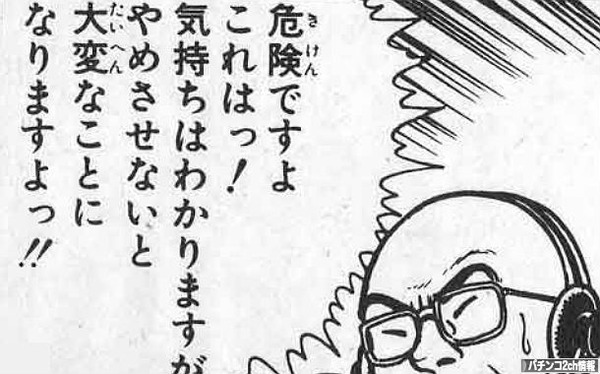 危険ですよ
これはっ！
気持ちはわかりますが
やめさせないと
大変なことに
なりますよっ!!
きけん
たいへん
パチンコ2ch情報